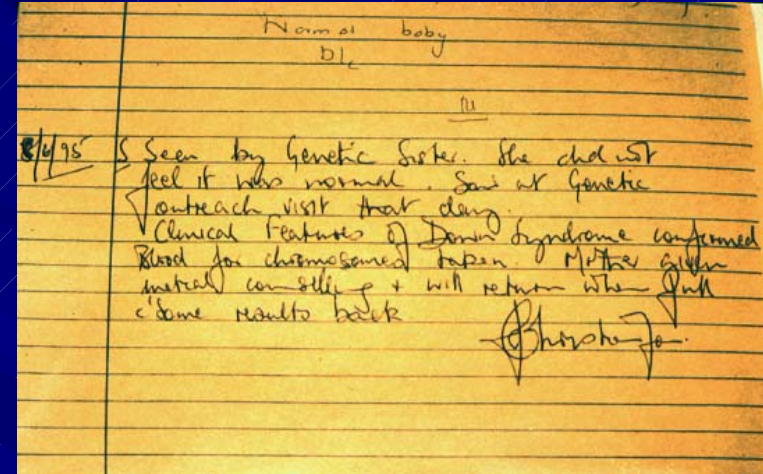 Normal baby
D/c
8/6/95 Seen by Genetic Sister. She did not
feel it was normal. Saw at Genetic
outreach visit that day.
Clinical Features of Down Syndrome confirmed
Blood for chromosomes taken. Mother given
initial counselling + will return when full
c'some results back